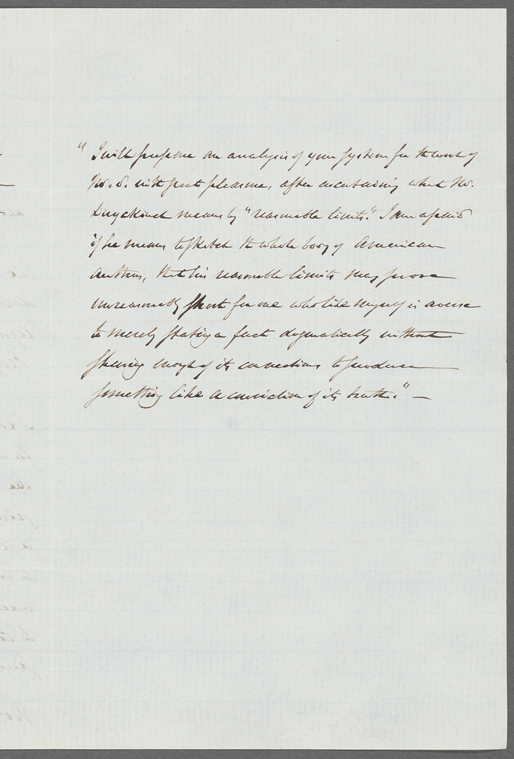 "I will prepare an analysis of your system for the work of
Mr. D. with great pleasure, after ascertaining what Mr.
Duyckinck means by "reasonable limits." I am afraid
if he means to sketch the whole body of American
authors, that his reasonable limits may prove
unreasonably short for one who like myself is averse
to merely stating a fact dogmatically without
showing enough of its connections to produce
something like a conviction of its truth." —